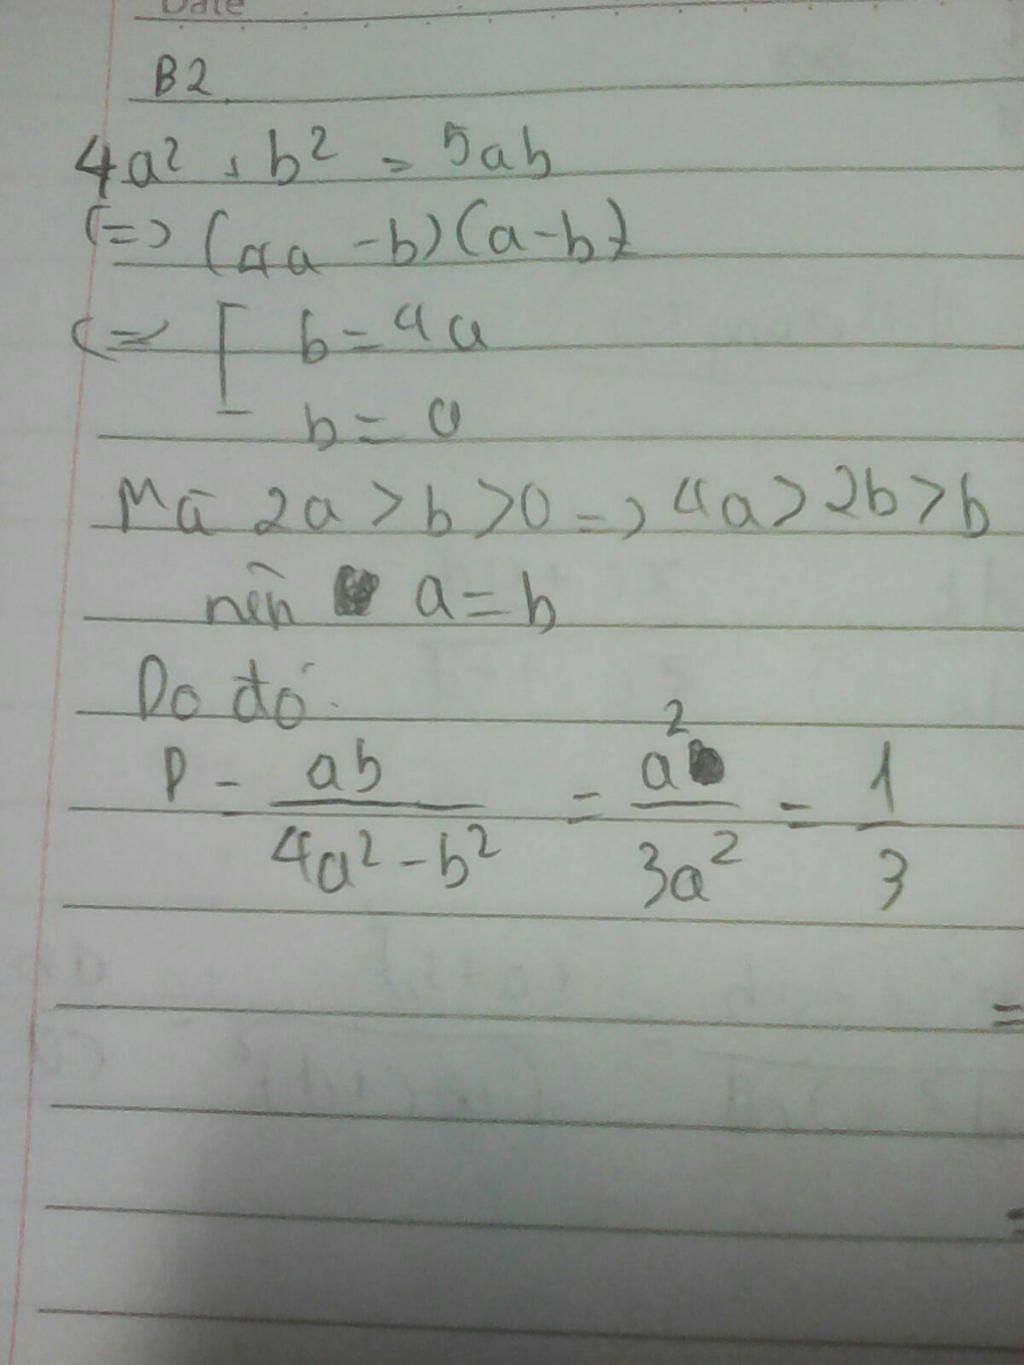 Date
B2
4a² + b² = 5ab
<=> (4a - b)(a - b)
<=> [ b = 4a
b = a
Mà 2a > b > 0 => 4a > 2b > b
nên a = b
Do đó
P = ab / (4a² - b²) = a² / 3a² = 1/3